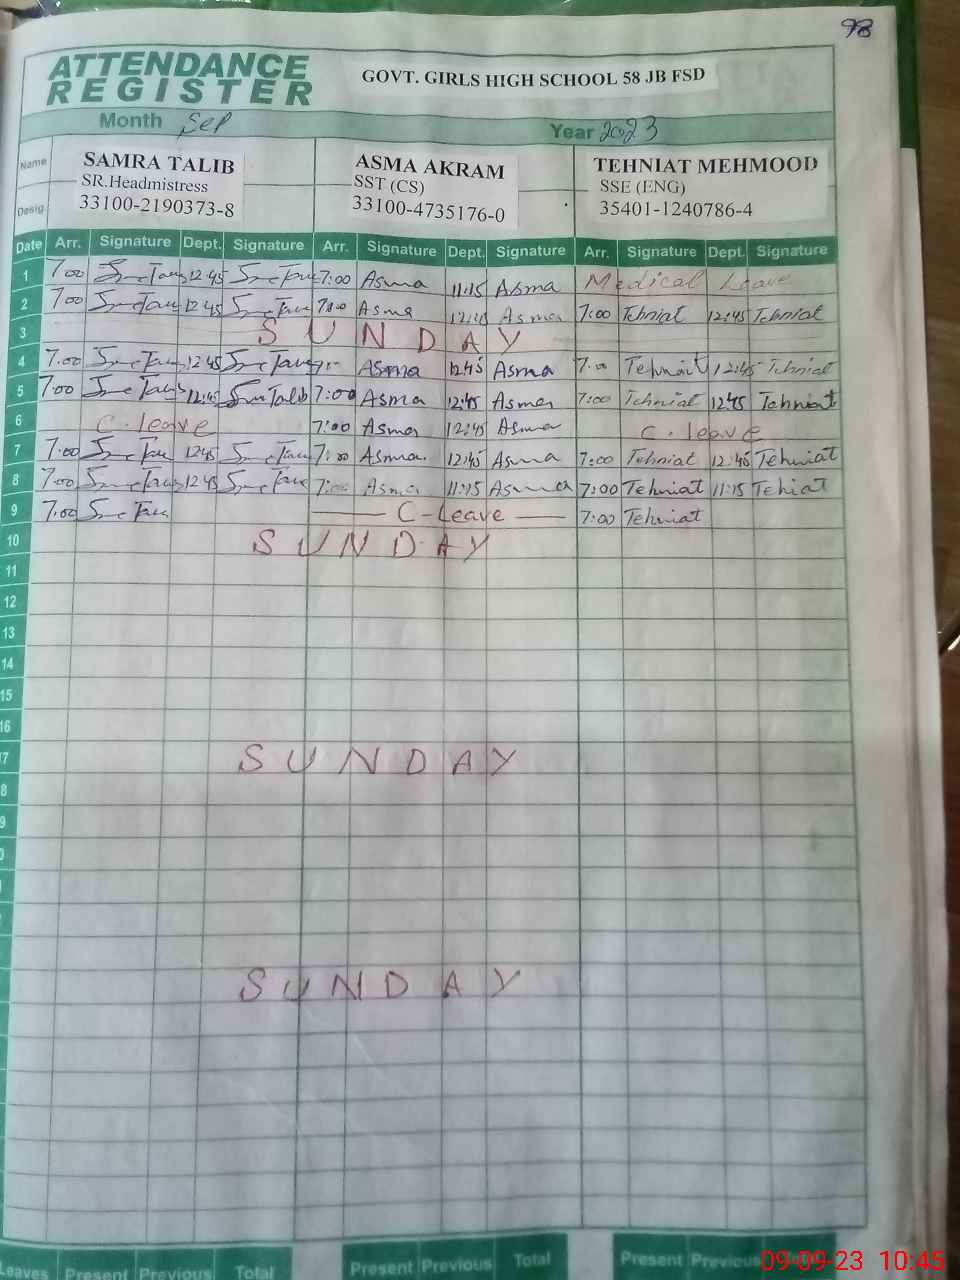 98
ATTENDANCE
REGISTER
GOVT. GIRLS HIGH SCHOOL 58 JB FSD
Month Sep Year 2023
Name SAMRA TALIB ASMA AKRAM TEHNIAT MEHMOOD
SR.Headmistress SST (CS) SSE (ENG)
Desig. 33100-2190373-8 33100-4735176-0 35401-1240786-4
Date Arr. Signature Dept. Signature Arr. Signature Dept. Signature Arr. Signature Dept. Signature
1 7:00 12:45 7:00 Asma 11:15 Asma Medical Leave
2 7:00 12:45 7:00 Asma Asma 7:00 Tehniat 12:45 Tehniat
3 SUNDAY
4 7:00 12:45 Asma 12:45 Asma 7:00 Tehniat 12:45 Tehniat
5 7:00 12:45 Talib 7:00 Asma 12:45 Asma 7:00 Tehniat 12:45 Tehniat
6 C. leave 7:00 Asma 12:45 Asma C. leave
7 7:00 12:45 7:00 Asma 12:45 Asma 7:00 Tehniat 12:45 Tehniat
8 7:00 12:45 7:00 Asma 11:15 Asma 7:00 Tehniat 11:15 Tehiat
9 7:00 C-Leave 7:00 Tehniat
10 SUNDAY
11
12
13
14
15
16
7 SUNDAY
8
9
SUNDAY
Leaves Present Previous Total Present Previous Total Present Previous Total
09-09-23 10:45